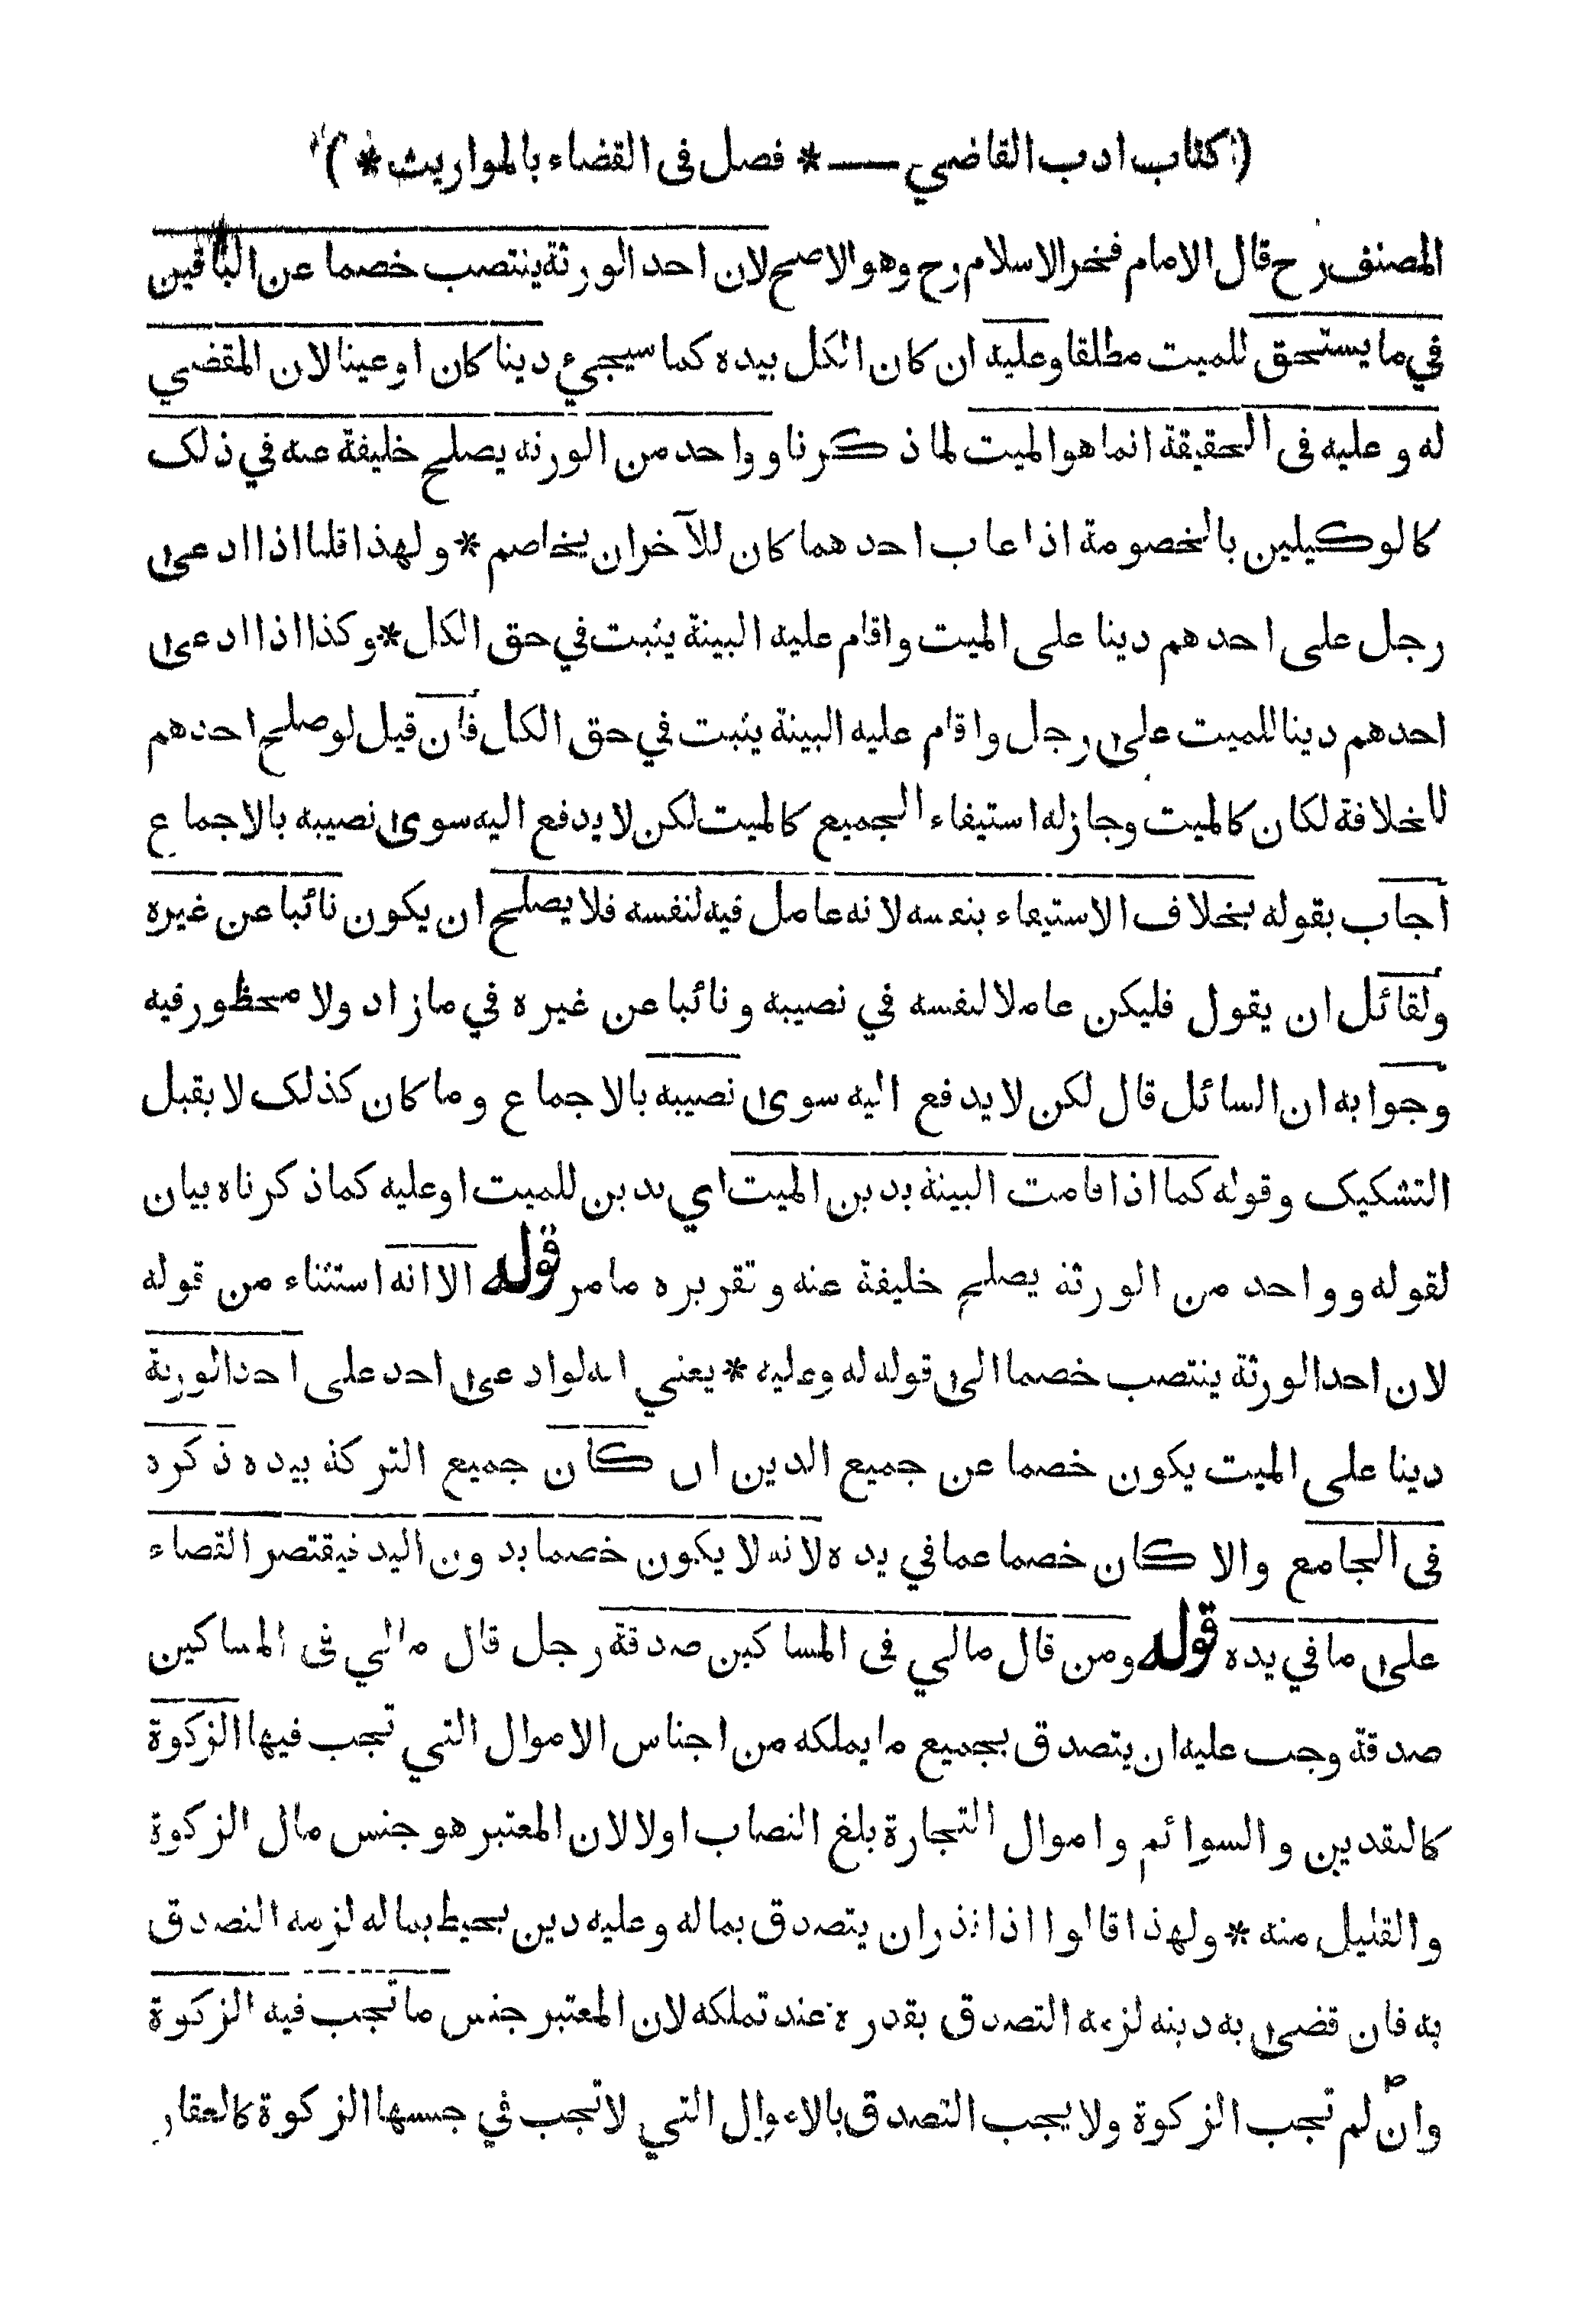 ( كتاب ادب القاضي — * فصل فى القضاء بالمواريث * )
المصنف رح قال الامام فخر الاسلام رح وهو الاصح لان احد الورثة ينتصب خصما عن الباقين
في ما يستحق للميت مطلقا وعليه ان كان الكل بيده كما سيجيء دينا كان او عينا لان المقضي
له وعليه فى الحقيقة انما هو الميت لما ذكرنا وواحد من الورثه يصلح خليفة عنه في ذلك
كالوكيلين بالخصومة اذا غاب احدهما كان للآخر ان يخاصم * ولهذا قلنا اذا ادعى
رجل على احدهم دينا على الميت واقام عليه البينة يثبت في حق الكل * وكذا اذا ادعى
احدهم دينا للميت على رجل واقام عليه البينة يثبت في حق الكل فان قيل لو صلح احدهم
للخلافة لكان كالميت وجاز له استيفاء الجميع كالميت لكن لا يدفع اليه سوى نصيبه بالاجماع
أجاب بقوله بخلاف الاستيفاء بنفسه لانه عامل فيه لنفسه فلا يصلح ان يكون نائبا عن غيره
ولقائل ان يقول فليكن عاملا لنفسه في نصيبه ونائبا عن غيره في ما زاد ولا محظور فيه
وجوابه ان السائل قال لكن لا يدفع اليه سوى نصيبه بالاجماع وما كان كذلك لا يقبل
التشكيك وقوله كما اذا قامت البينة بدين الميت اي بدين للميت او عليه كما ذكرناه بيان
لقوله وواحد من الورثة يصلح خليفة عنه وتقريره ما مر قوله الا انه استثناء من قوله
لان احد الورثة ينتصب خصما الى قوله له وعليه * يعني انه لو ادعى احد على احد الورثة
دينا على الميت يكون خصما عن جميع الدين ان كان جميع التركة بيده ذكره
فى الجامع والا كان خصما عما في يده لانه لا يكون خصما بدون اليد فيقتصر القضاء
على ما في يده قوله ومن قال مالي فى المساكين صدقة رجل قال مالي فى المساكين
صدقة وجب عليه ان يتصدق بجميع ما يملكه من اجناس الاموال التي تجب فيها الزكوة
كالنقدين والسوائم واموال التجارة بلغ النصاب اولا لان المعتبر هو جنس مال الزكوة
والقليل منه * ولهذا قالوا اذا نذر ان يتصدق بماله وعليه دين يحيط بماله لزمه التصدق
به فان قضى به دينه لزمه التصدق بقدره عند تملكه لان المعتبر جنس ما تجب فيه الزكوة
وان لم تجب الزكوة ولا يجب التصدق بالاموال التي لا تجب في جنسها الزكوة كالعقار